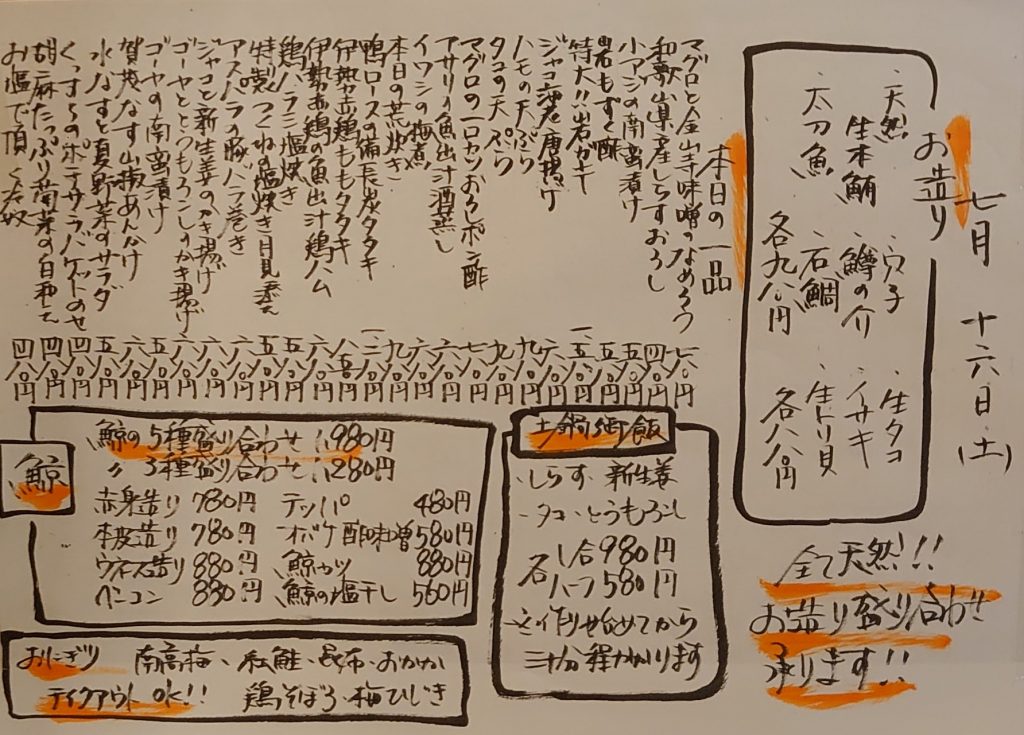 七月 十六日(土)
お造り
・天然 生本鮪 ・太刀魚
・穴子 ・鱒の介 ・石鯛 各九八〇円
・生タコ ・イサキ ・生トリ貝 各八八〇円
全て天然!!
お造り盛り合わせ
承ります!!
本日の一品
マグロと金山寺味噌のなめろう
和歌山県産しらすおろし 四八〇円
小アジの南蛮漬け 五八〇円
岩もずく酢
特大!!岩ガキ
ジャコ海老唐揚げ 六八〇円
ハモの天ぷら
タコの天ぷら
マグロの一口カツおろしポン酢
アサリの魚出汁酒蒸し
イワシの梅煮
本日の荒炊き
鴨ロースの備長炭タタキ
伊勢赤鶏ももタタキ
伊勢赤鶏の魚出汁鶏ハム
鶏ハラミ塩焼き
特製つくねの塩焼き月見添え
アスパラの豚バラ巻き
ジャコと新生姜のかき揚げ
ゴーヤととうもろこしのかき揚げ
ゴーヤの南蛮漬け
賀茂なす山椒あんかけ
水なすと夏野菜のサラダ
くっすらのポテサラバゲットのせ 四八〇円
胡麻たっぷり菊菜の白和え 四八〇円
お塩で頂く 四八〇円
土鍋御飯
・しらす・新生姜
・タコ・とうもろこし
各 1合 980円
ハーフ 580円
※作り始めてから
三十分程かかります
鯨
鯨の5種盛り合わせ 1,980円
〃 3種盛り合わせ 1,280円
赤身造り 780円 テッパ 480円
本皮造り 780円 オバケ酢味噌 580円
ウネス造り 880円 鯨カツ 880円
ベーコン 880円 鯨の塩干し 560円
おにぎり 南高梅・紅鮭・昆布・おかか
テイクアウトOK!! 鶏そぼろ・梅ひじき